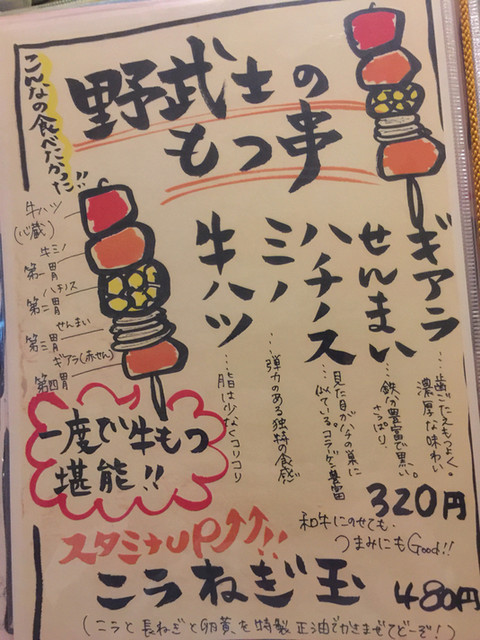 こんなの食べたかった!!
野武士の
もつ串
牛ハツ
(心臓)
牛ミノ
第一胃
ハチノス
第二胃
せんまい
第三胃
ギアラ(赤せん)
第四胃
一度で牛もつ
堪能!!
ギアラ…歯ごたえもよく。
濃厚な味わい
せんまい…鉄分豊富で黒い。
さっぱり。
ハチノス…見た目がハチの巣に
似ている。コラーゲン豊富
ミノ…弾力のある独特の食感
牛ハツ…脂は少なくコリコリ
320円
和牛にのせても、
つまみにもGood!!
スタミナUP↑↑!!
ニラねぎ玉 480円
(ニラと長ねぎと卵黄を特製正油でかきまぜてどーぞ!)